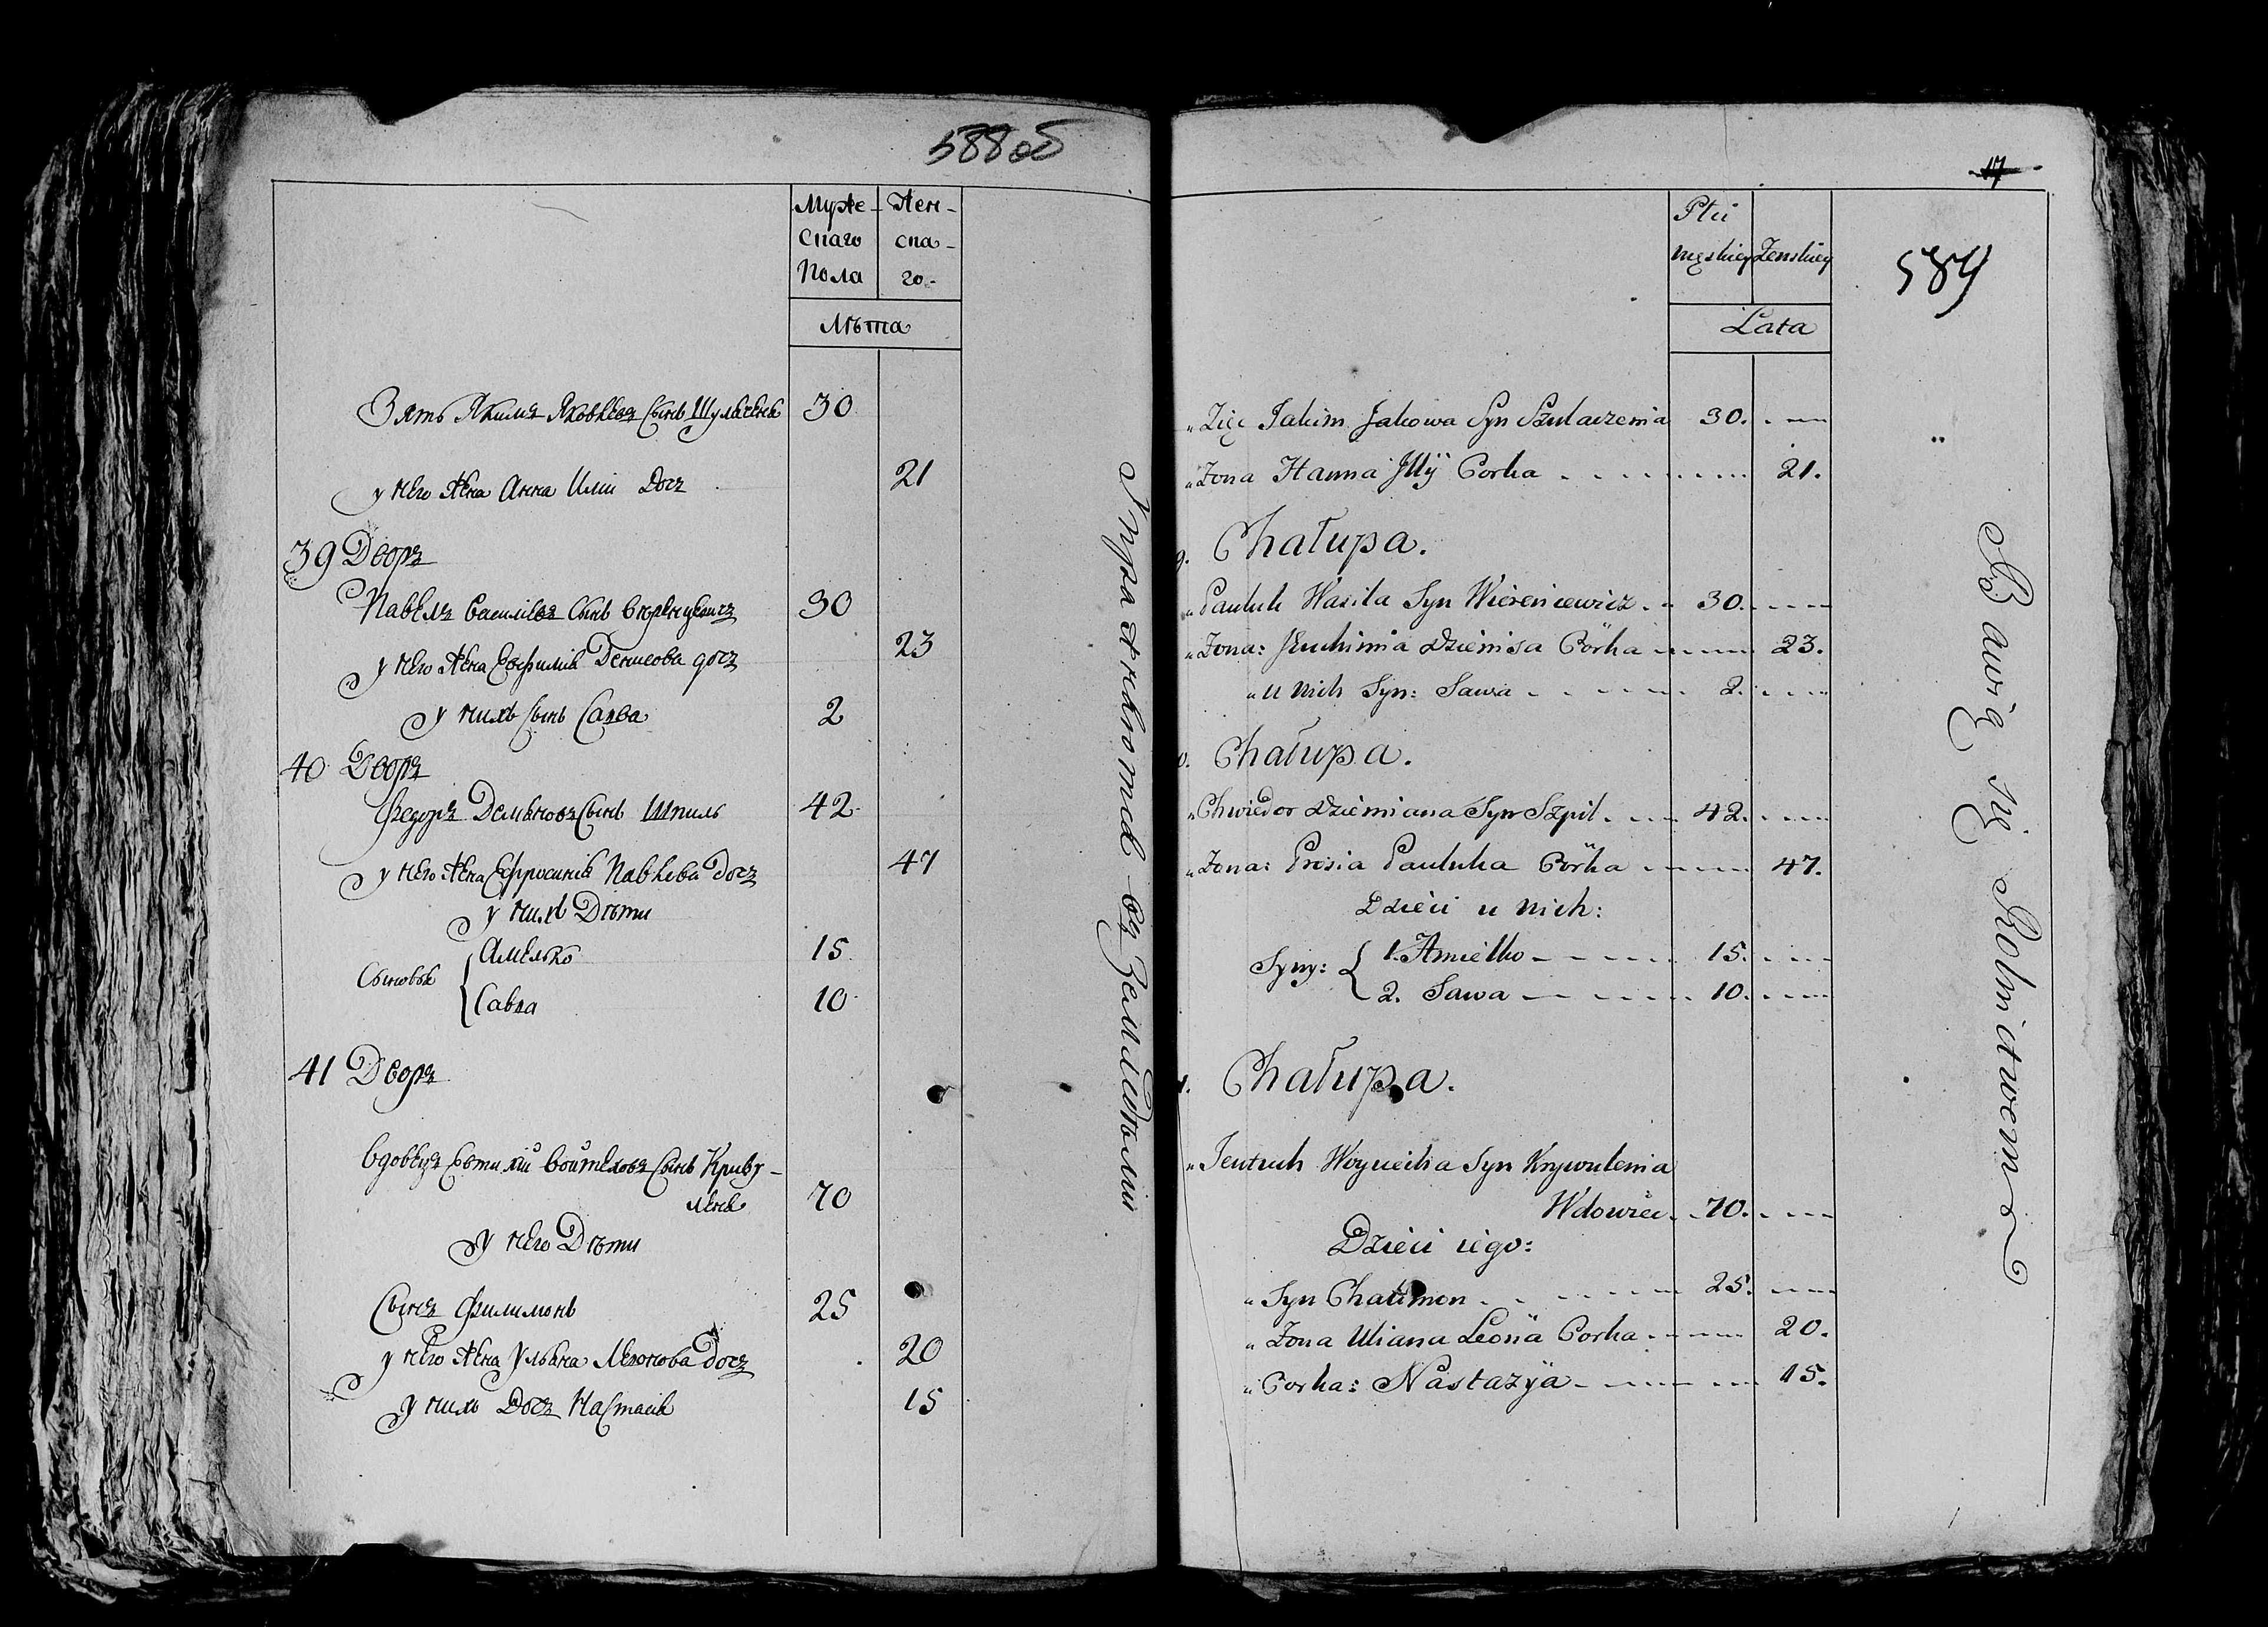 588 об
Муже-
скаго
Пола
Жен-
ска-
го.
Лѣта
Зять Якимъ Яковлевъ Сынъ Шульженя 30
у него Жена Анна Илїи Дочь 21
39 Дворъ
Павелъ Васильевъ Сынъ 30
у него Жена Евфимія Денисова дочь 23
у нихъ Сынъ Савва 2
40 Дворъ
Федоръ Демьяновъ Сынъ Шпиль 42
у него Жена Ефросинія Павлова Дочь 47
у нихъ Дѣти
Сыновья
Амелько 15
Савва 10
41 Дворъ
Вдовецъ Войтеховъ Сынъ Криву-
леня 70
у него Дѣти
Сынъ Филимонъ 25
у него Жена Ульяна Леонова Дочь 20
у нихъ Дочь Настасія 15
Упражняются въ Земледѣлїи
17
589
Płci
męskiey Zenskiey
Lata
" Zięć Jakim Jakowa Syn Szulaczenia 30.
" Zona Hanna Jllÿ Corka 21.
9. Chałupa.
" Pauluk Wasila Syn Wiereniewicz 30.
" Zona: Jeuchimia Dziemisa Córka 23.
" u nich Syn: Sawa 2.
0. Chałupa.
" Chwiedor Dziemiana Syn Szpil 42.
" Zona: Prosia Pauluka Córka 47.
Dzieci u nich:
Syny:
1. Amielko 15.
2. Sawa 10.
1. Chałupa.
" Jeutuch Woyciecha Syn Krywulenia
Wdowiec 70.
Dzieci iego:
" Syn Chalimon 25.
" Zona Uliana Leona Corka 20.
" Corka: Nastazÿa 15.
Bawię się Rolnictwem